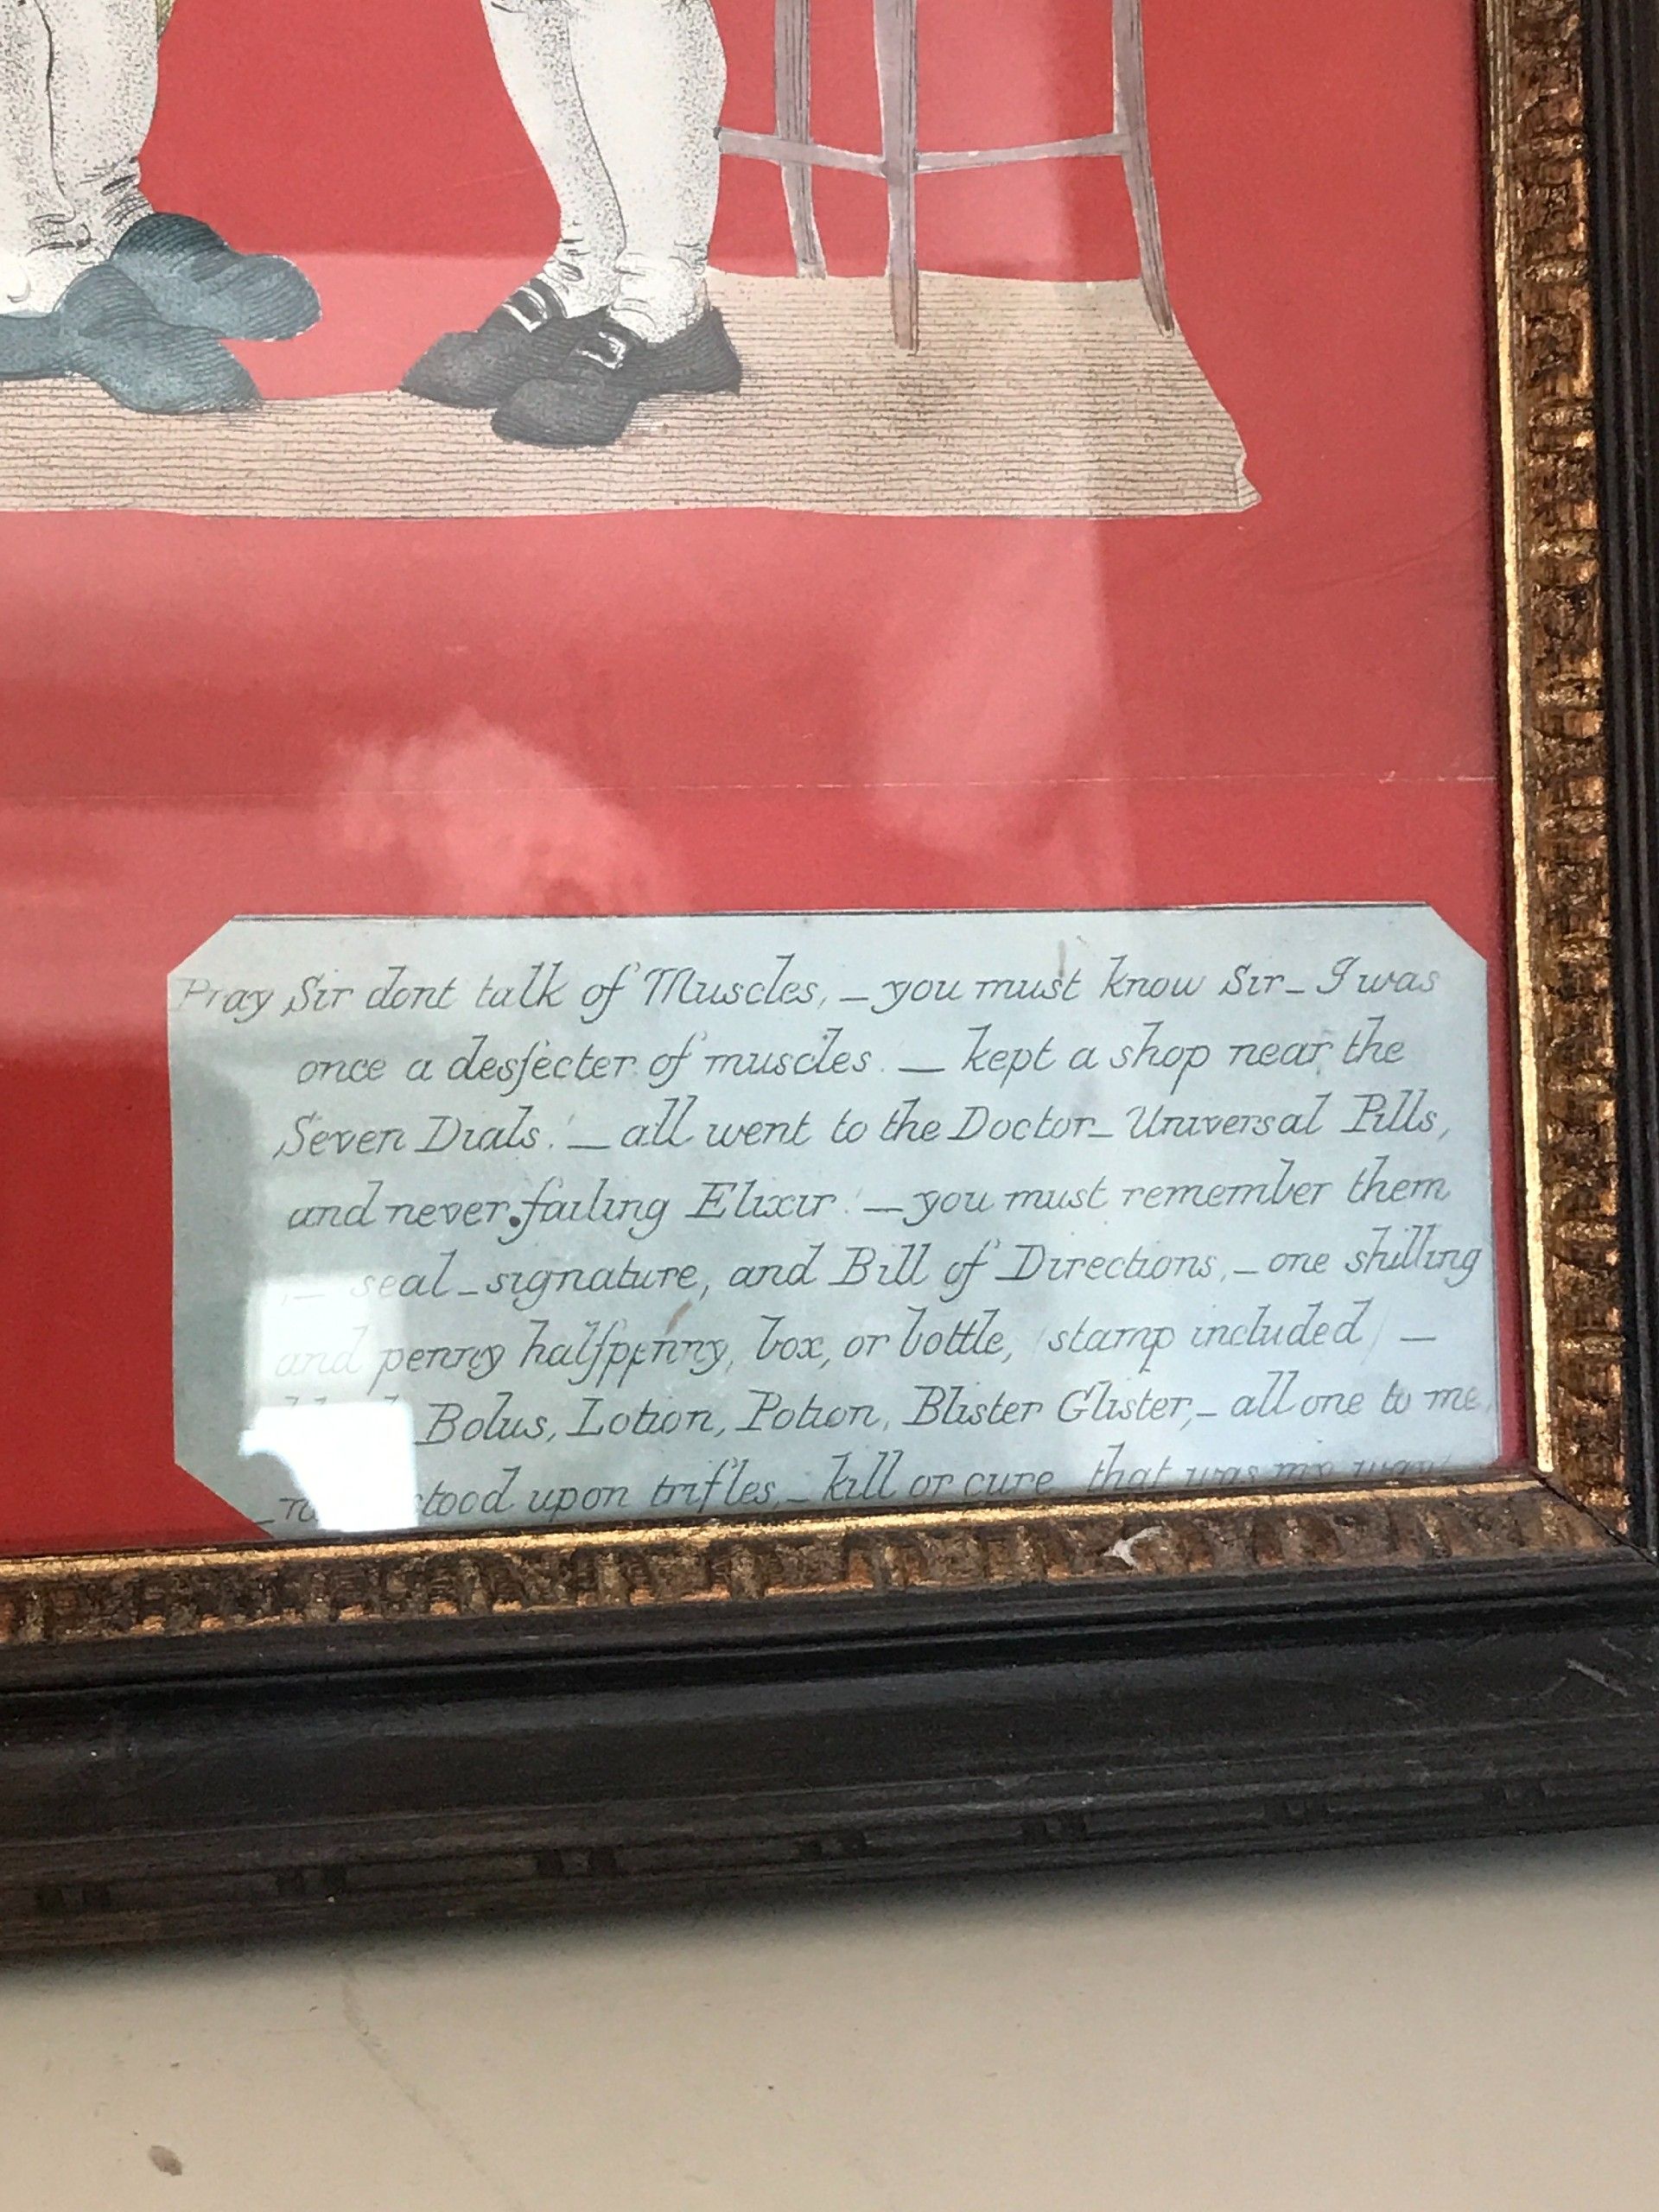 Pray Sir dont talk of Muscles, — you must know Sir — I was
once a desſecter of muscles. — kept a shop near the
Seven Dials! — all went to the Doctor — Universal Pills,
and never failing Elixir! — you must remember them
— seal — signature, and Bill of Directions, — one shilling
and penny halfpenny, box, or bottle, (stamp included) —
Bolus, Lotion, Potion, Blister Glister, — all one to me,
stood upon trifles, — kill or cure that was my